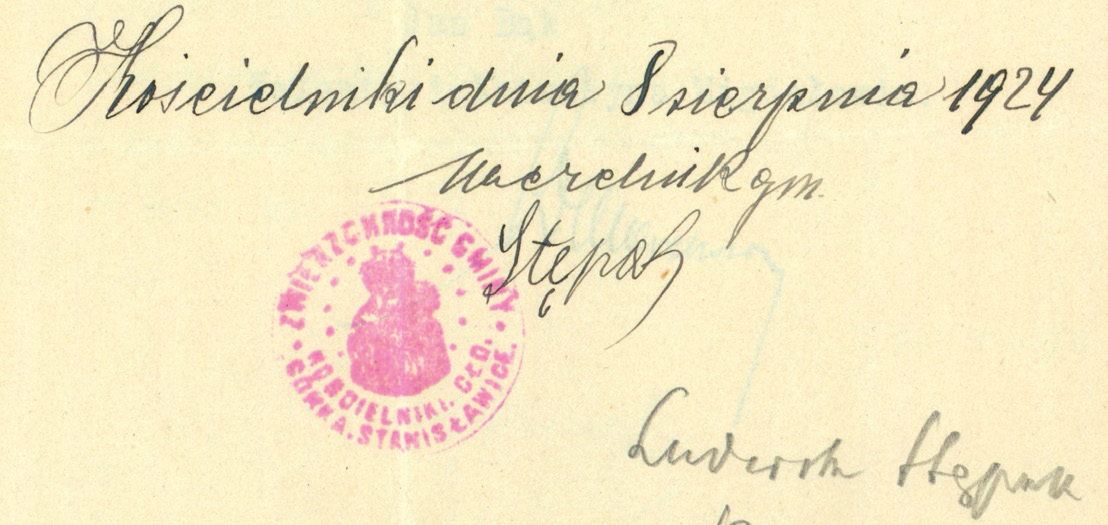 Kościelniki dnia 8 sierpnia 1924
Naczelnik gm.
Stępak
ZWIERZCHNOŚĆ GMINY
KOŚCIELNIKI. CŁO.
GÓRKA. STANISŁAWICE.
Stępak